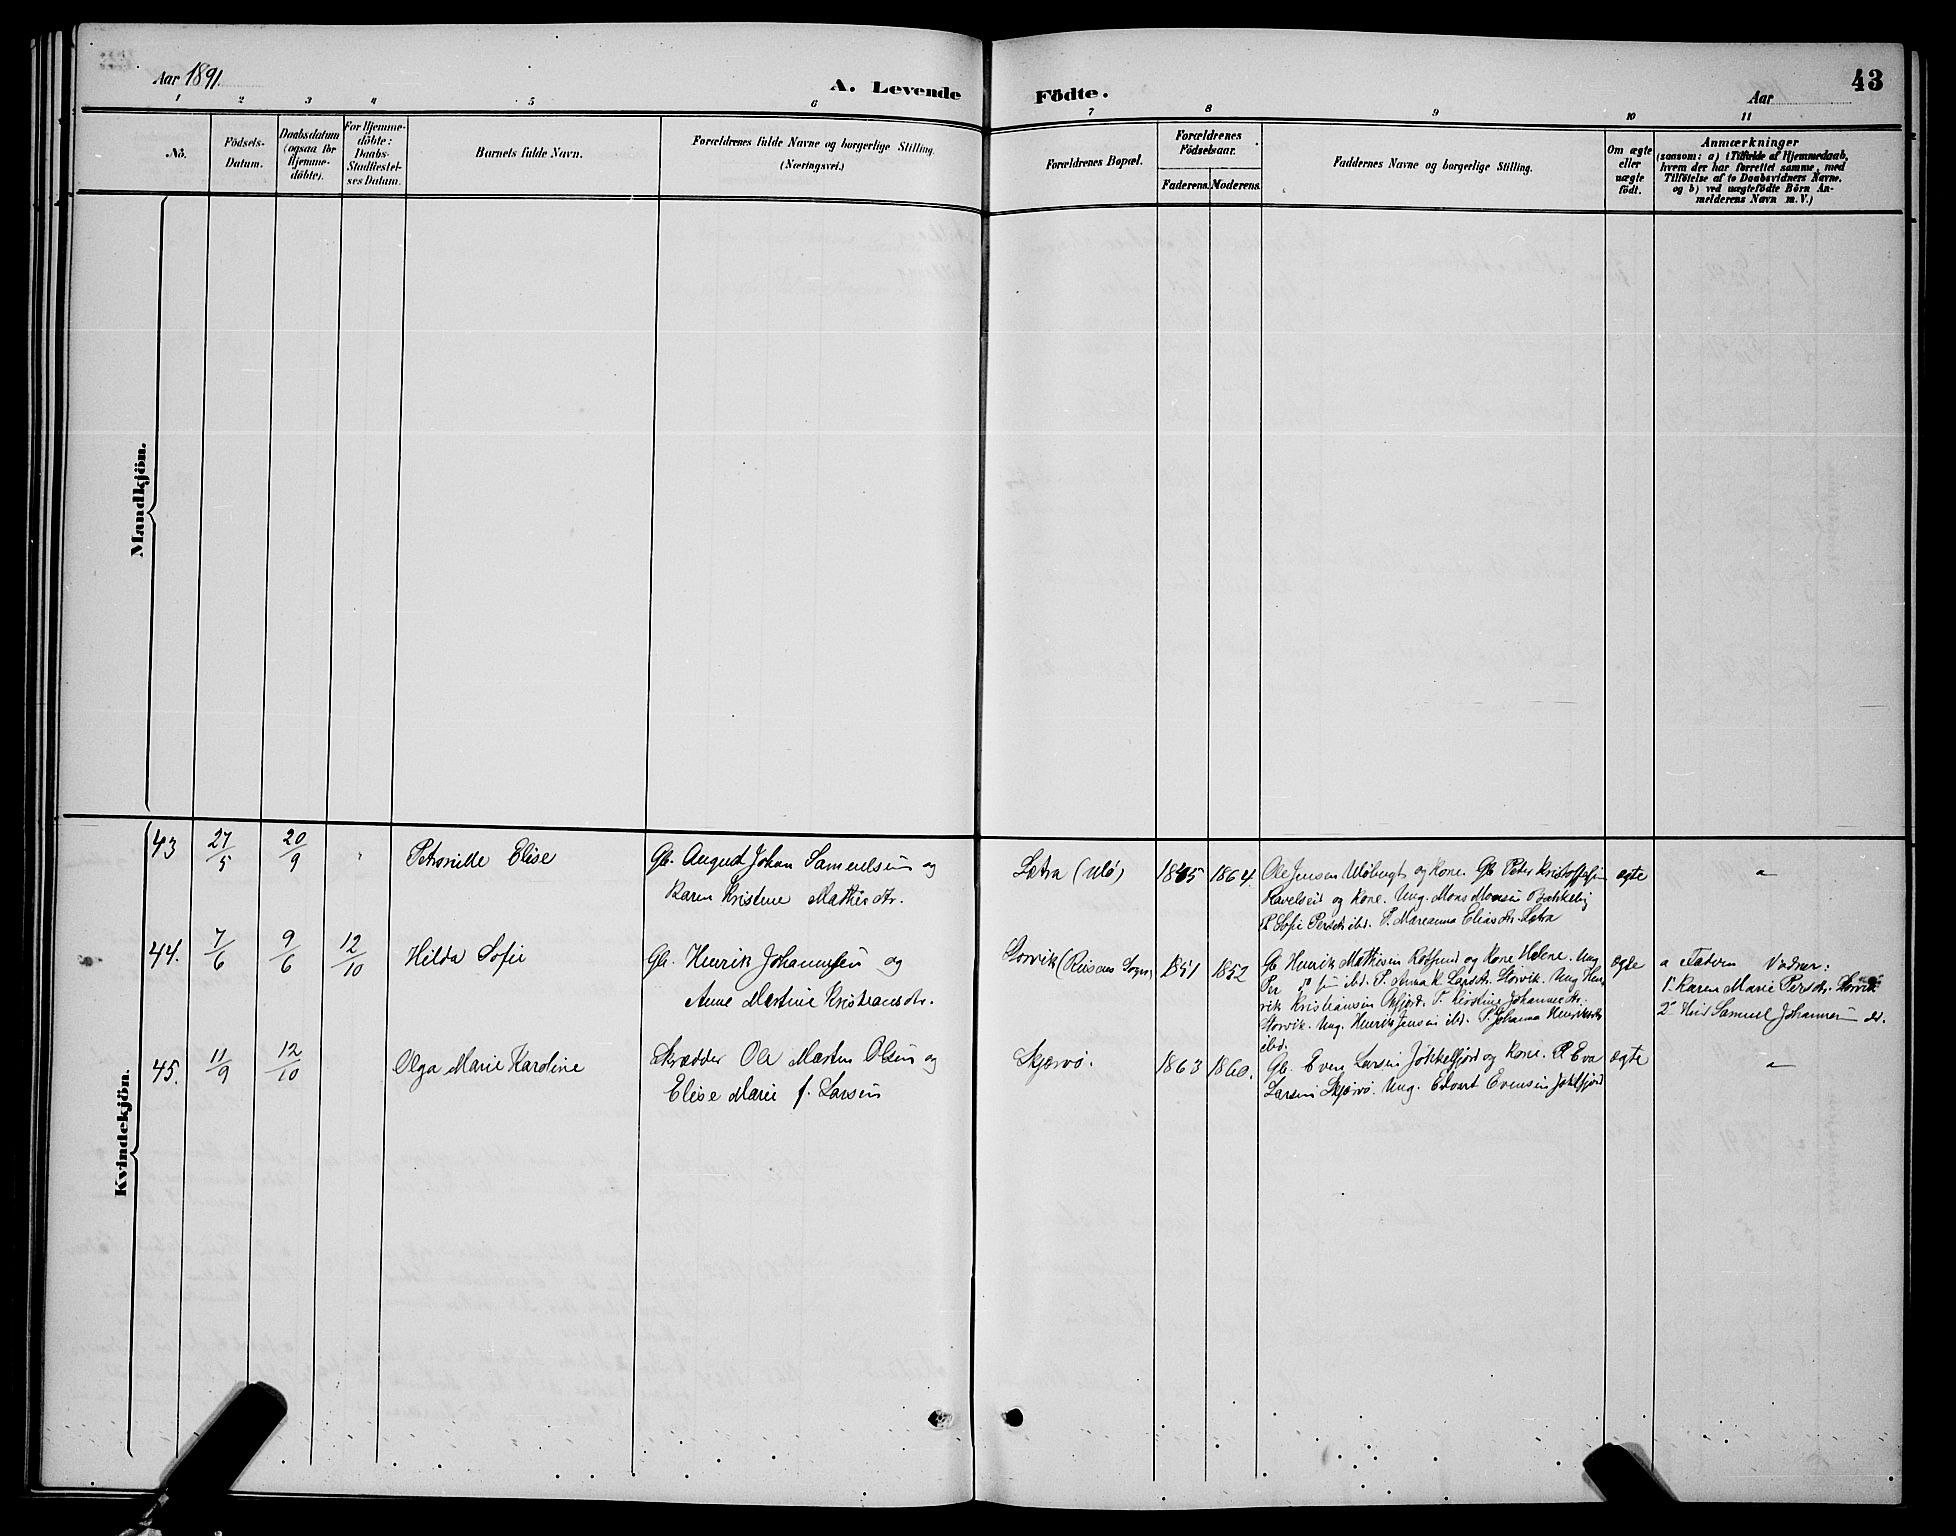 Aar 1891.
A. Levende Födte.
Aar
43
1 2 3 4 5 6 7 8 9 10 11
No.
Födsels-Datum.
Daabsdatum (ogsaa for Hjemme-döbte).
For Hjemme-döbte: Daabs-Stadfæstel-ses Datum.
Barnets fulde Navn.
Forældrenes fulde Navne og borgerlige Stilling. (Næringsvei.)
Forældrenes Bopæl.
Forældrenes Födselsaar.
Faderens. Moderens.
Faddernes Navne og borgerlige Stilling.
Om ægte eller uægte födt.
Anmærkninger
(saasom: a) i Tilfælde af Hjemmedaab,
hvem der har forrettet samme, med
Tilföielse af to Daabsvidners Navne.
og b) ved uægtefödte Börn An-
melderens Navn m. V.)
Mandkjön.
Kvindekjön.
43 27/5 20/9 " Petronille Elise
Gb. August Johan Samuelsen og
Karen Kristine Mathisdtr.
Sætra (Ulö) 1865 1864.
Ole Jensen Ulöbugt og Kone. Gb Peter Kristoffersen
Havelseid og Kone. Ung. Mons Monsen
P. Sofie Persdtr ibd. P. Mareanna Eliasdtr. Sætra
ægte
"
44. 7/6 9/6 12/10 Hilda Sofie
Gb. Henrik Johannesen og
Anne Martine Kristiansdtr.
Storvik (Reisens Sogn) 1851 1852
Gb Henrik Mathisen Rotsund og Kone Helene. Ung
Per ibd. P. Anna K. Larsdtr. Storvik. Ung Hen-
rik Kristiansen P. Kirstine Johannesdtr.
Storvik. Ung. Henrik Jensen ibd. P. Johanna Henriksdtr
ibd.
ægte
a Faderen Vidner:
1° Karen Marie Persdtr. Storvik
2° Samuel Johannesen do.
45. 11/9 12/10 Olga Marie Karoline
Skrædder Ole Martin Olsen og
Elise Marie f. Larsen
Skjærvö. 1863 1860.
Gb. Even Larsen Jökkelfjord og Kone. P. Eva
Larsen Skjærvö. Ung. Edvart Evensen Jöklfjord
ægte
"